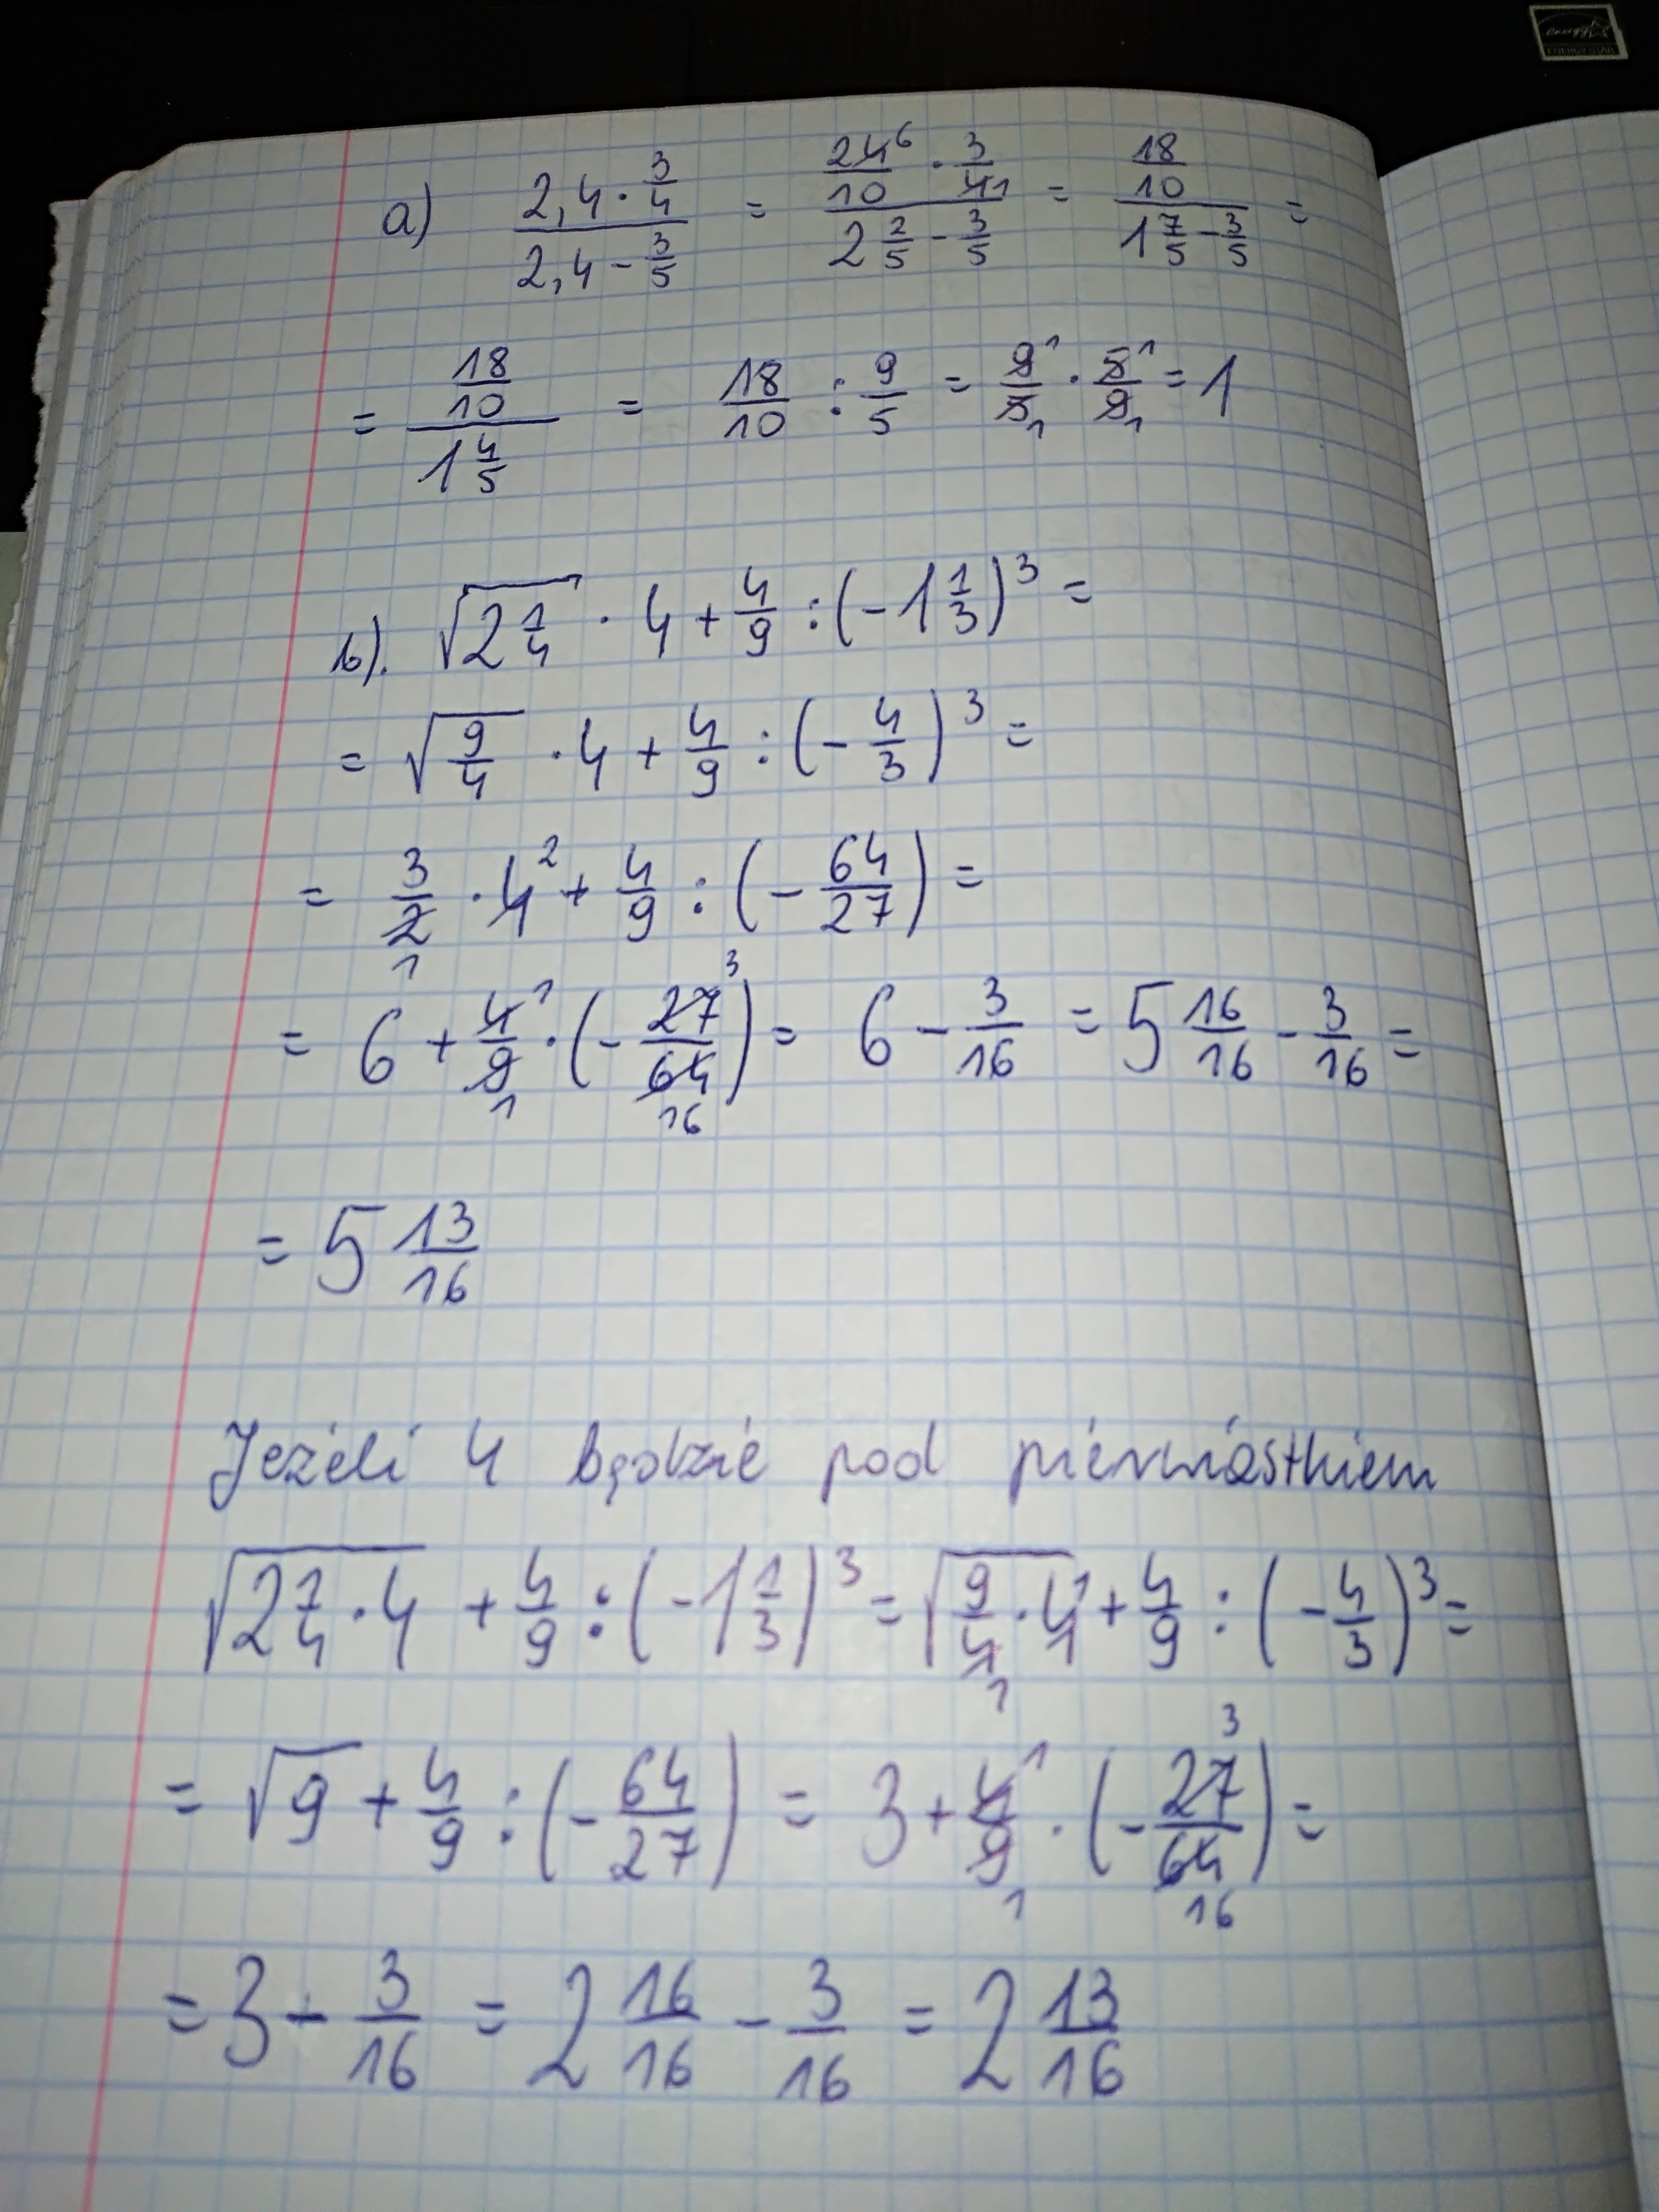 energy
ENERGY STAR
a) \frac{2,4 · \frac{3}{4}}{2,4 - \frac{3}{5}} = \frac{\frac{24^6}{10} · \frac{3}{4_1}}{2\frac{2}{5} - \frac{3}{5}} = \frac{\frac{18}{10}}{1\frac{7}{5} - \frac{3}{5}} =
= \frac{\frac{18}{10}}{1\frac{4}{5}} = \frac{18}{10} : \frac{9}{5} = \frac{9^1}{5_1} · \frac{5^1}{9_1} = 1
b). \sqrt{2\frac{1}{4}} · 4 + \frac{4}{9} : (-1\frac{1}{3})^3 =
= \sqrt{\frac{9}{4}} · 4 + \frac{4}{9} : (-\frac{4}{3})^3 =
= \frac{3}{2_1} · 4^2 + \frac{4}{9} : (-\frac{64}{27}) =
= 6 + \frac{4^1}{9_1} · (-\frac{27^3}{64_{16}}) = 6 - \frac{3}{16} = 5\frac{16}{16} - \frac{3}{16} =
= 5\frac{13}{16}
Jeżeli 4 będzie pod pierwiastkiem
\sqrt{2\frac{1}{4} · 4} + \frac{4}{9} : (-1\frac{1}{3})^3 = \sqrt{\frac{9}{4_1} · 4^1} + \frac{4}{9} : (-\frac{4}{3})^3 =
= \sqrt{9} + \frac{4}{9} : (-\frac{64}{27}) = 3 + \frac{4^1}{9_1} · (-\frac{27^3}{64_{16}}) =
= 3 - \frac{3}{16} = 2\frac{16}{16} - \frac{3}{16} = 2\frac{13}{16}